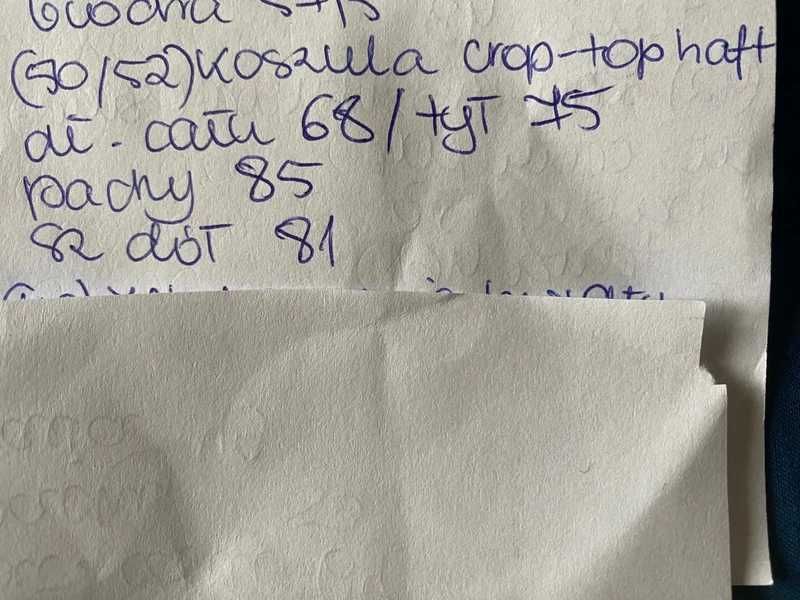 (50/52) koszula crop-top haft
dł. całk 68/tył 75
pachy 85
sz dół 81